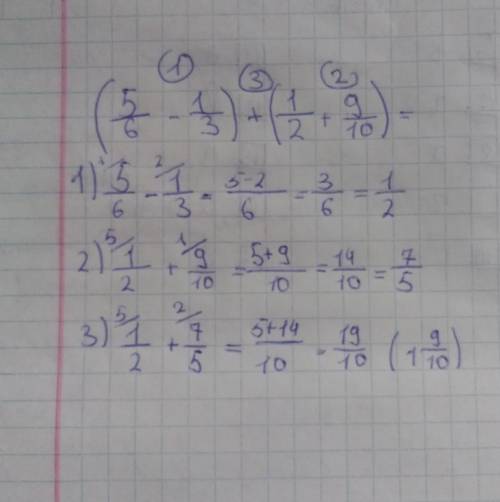 ① ③ ②
(5/6 - 1/3) + (1/2 + 9/10) =
1) ¹/5/6 - ²/1/3 = 5-2/6 = 3/6 = 1/2
2) ⁵/1/2 + ¹/9/10 = 5+9/10 = 14/10 = 7/5
3) ⁵/1/2 + ²/7/5 = 5+14/10 = 19/10 (1 9/10)